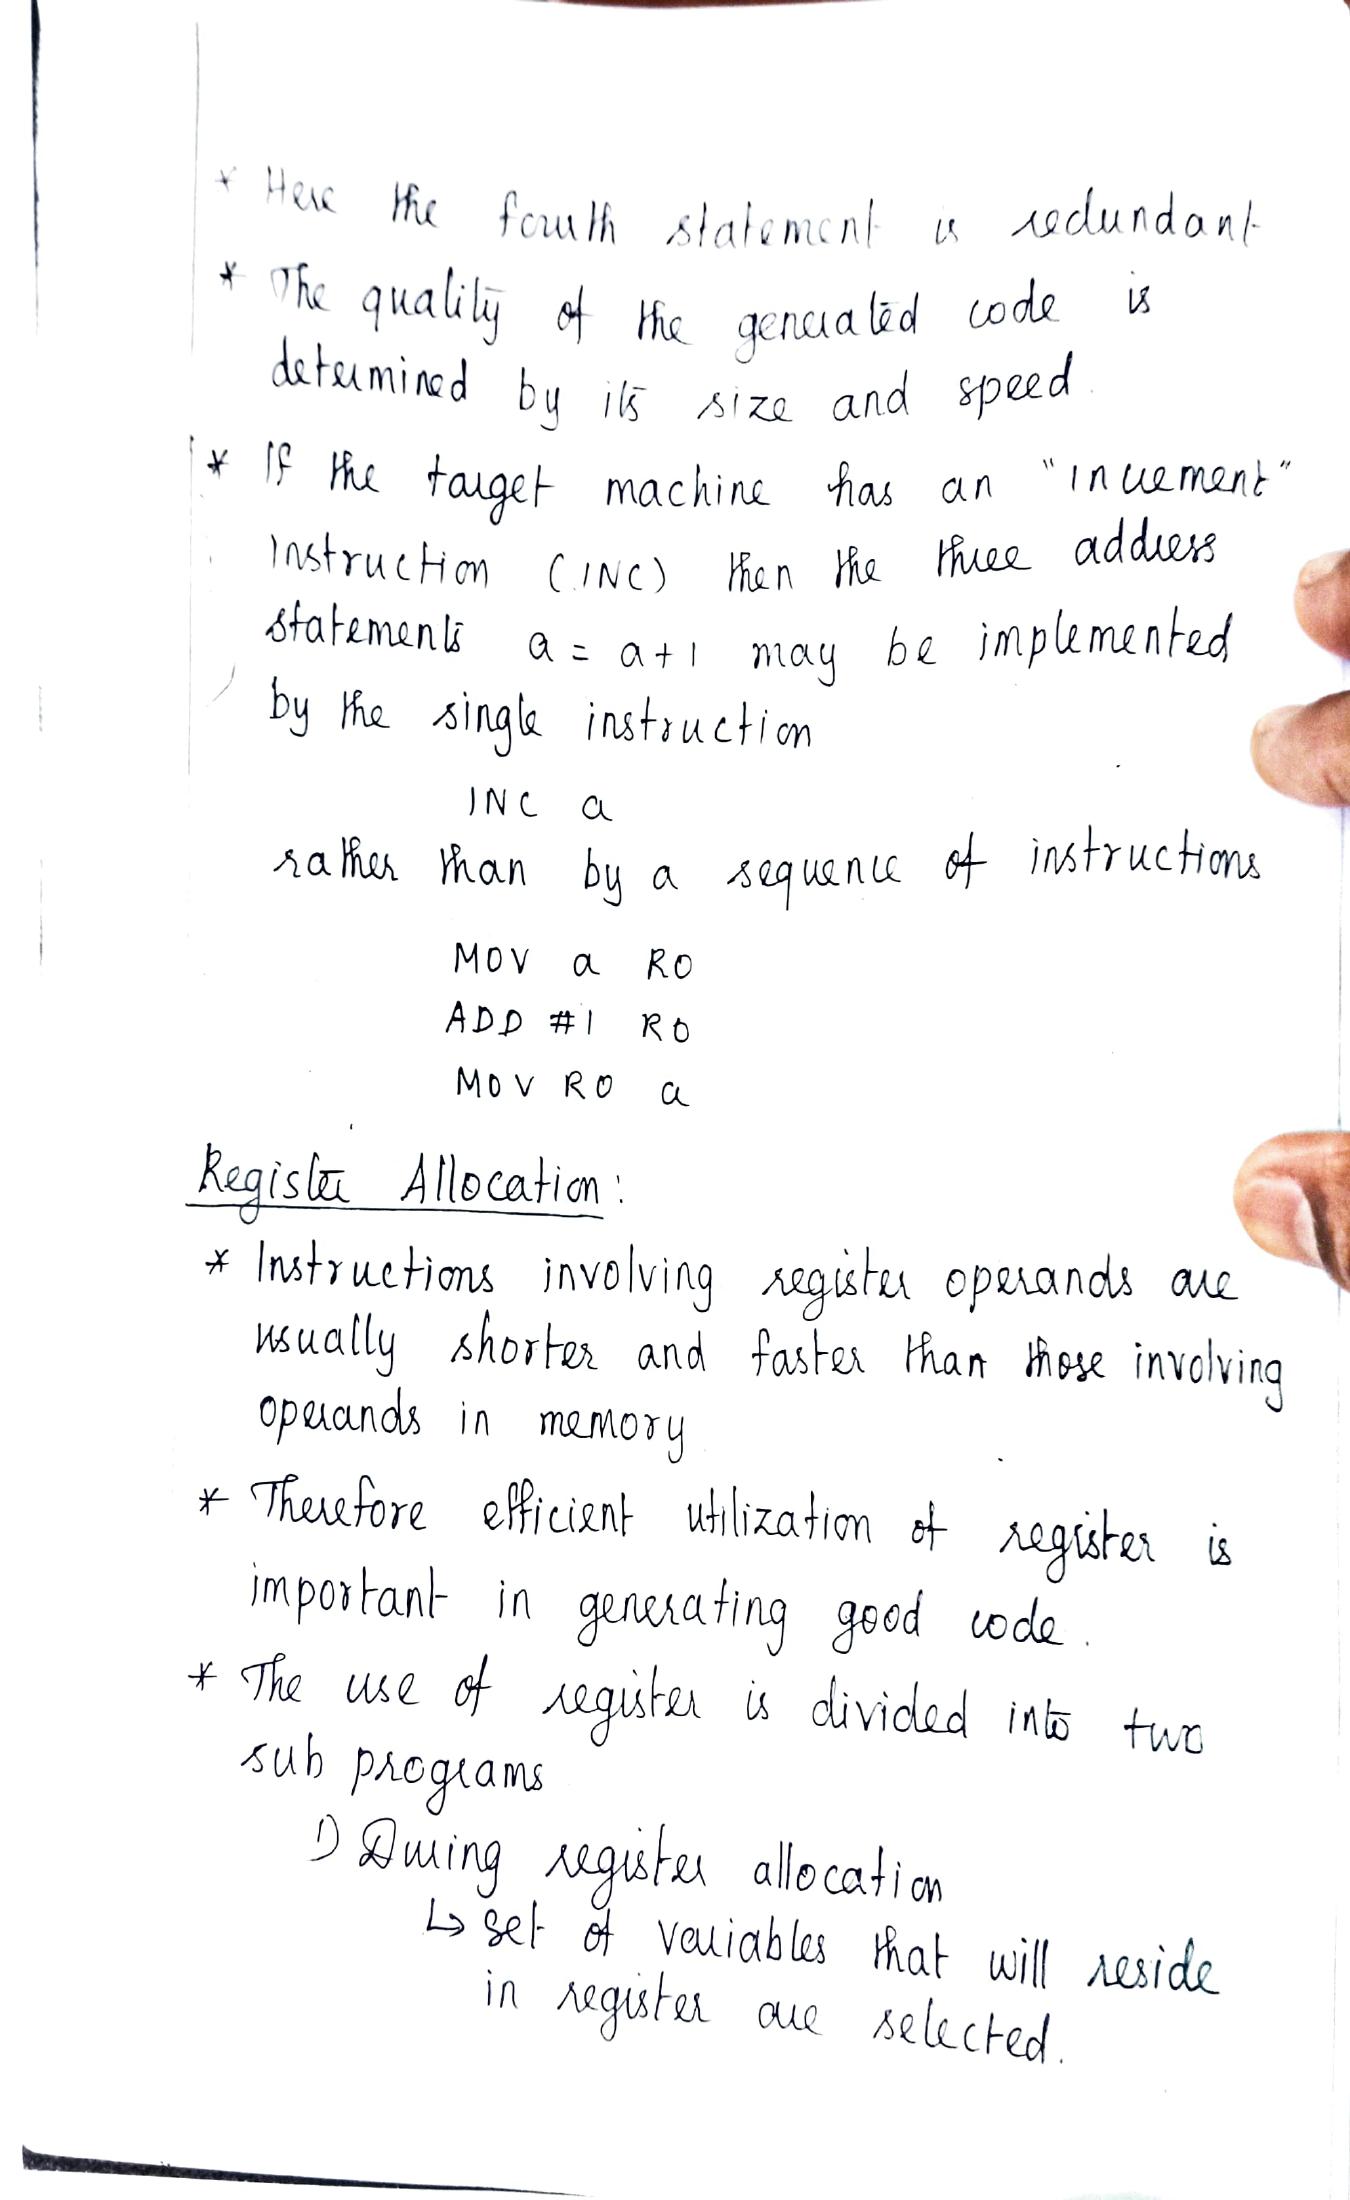 * Here the fourth statement is redundant
* The quality of the generated code is
determined by its size and speed.
* If the target machine has an "increment"
instruction (INC) then the three address
statements a = a+1 may be implemented
by the single instruction
INC a
rather than by a sequence of instructions
MOV a R0
ADD #1 R0
MOV R0 a
Register Allocation:
* Instructions involving register operands are
usually shorter and faster than those involving
operands in memory
* Therefore efficient utilization of register is
important in generating good code.
* The use of register is divided into two
sub programs
1) During register allocation
↳ set of variables that will reside
in register are selected.